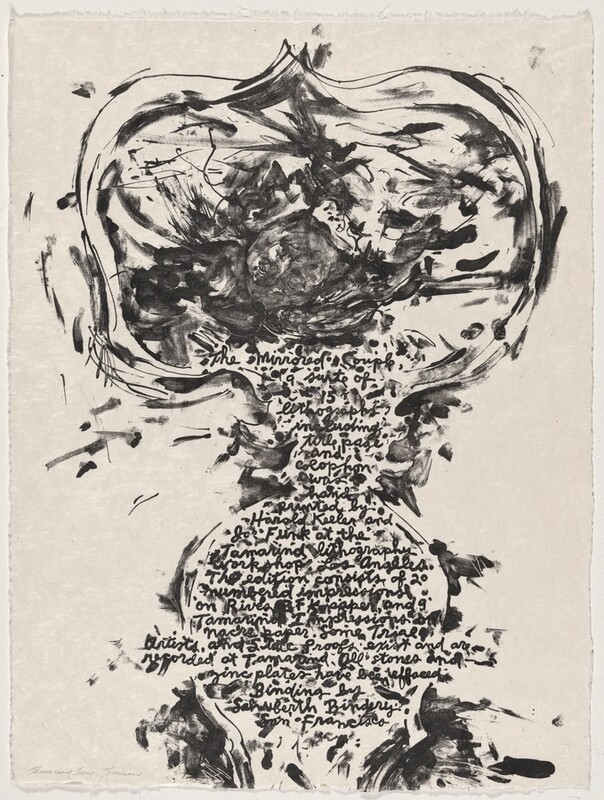 The Mirrored Couple,
a suite of
15
lithographs
including
title page
and
colophon
was
hand
printed by
Harold Keeler and
Jo Funk at the
Tamarind lithography
workshop, Los Angeles.
The edition consists of 20
numbered impressions
on Rives BFK paper, and 9
Tamarind Impressions on
nacre paper. Some Trial,
Artists, and State Proofs exist and are
recorded at Tamarind. All stones and
zinc plates have been effaced.
Binding by
Schuberth Bindery.
San Francisco